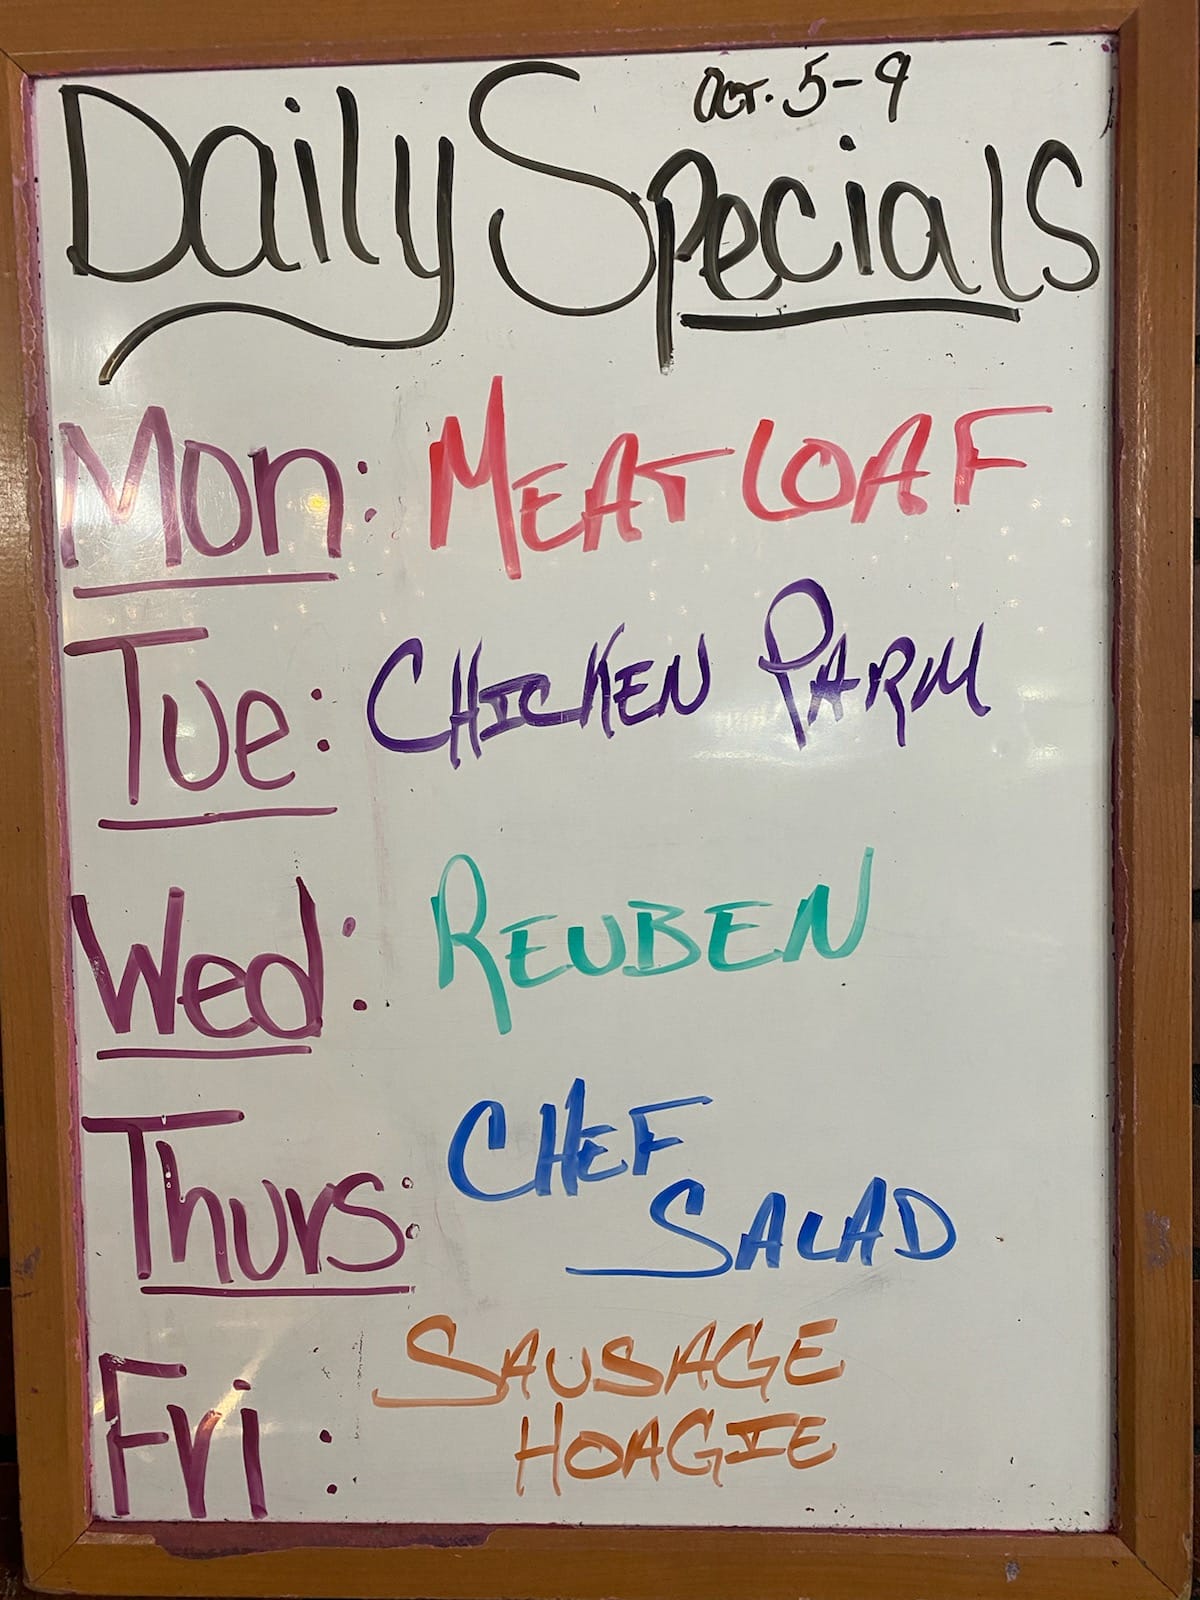 Oct. 5-9
Daily Specials
Mon: MEATLOAF
Tue: CHICKEN PARM
Wed: REUBEN
Thurs: CHEF
SALAD
Fri: SAUSAGE
HOAGIE